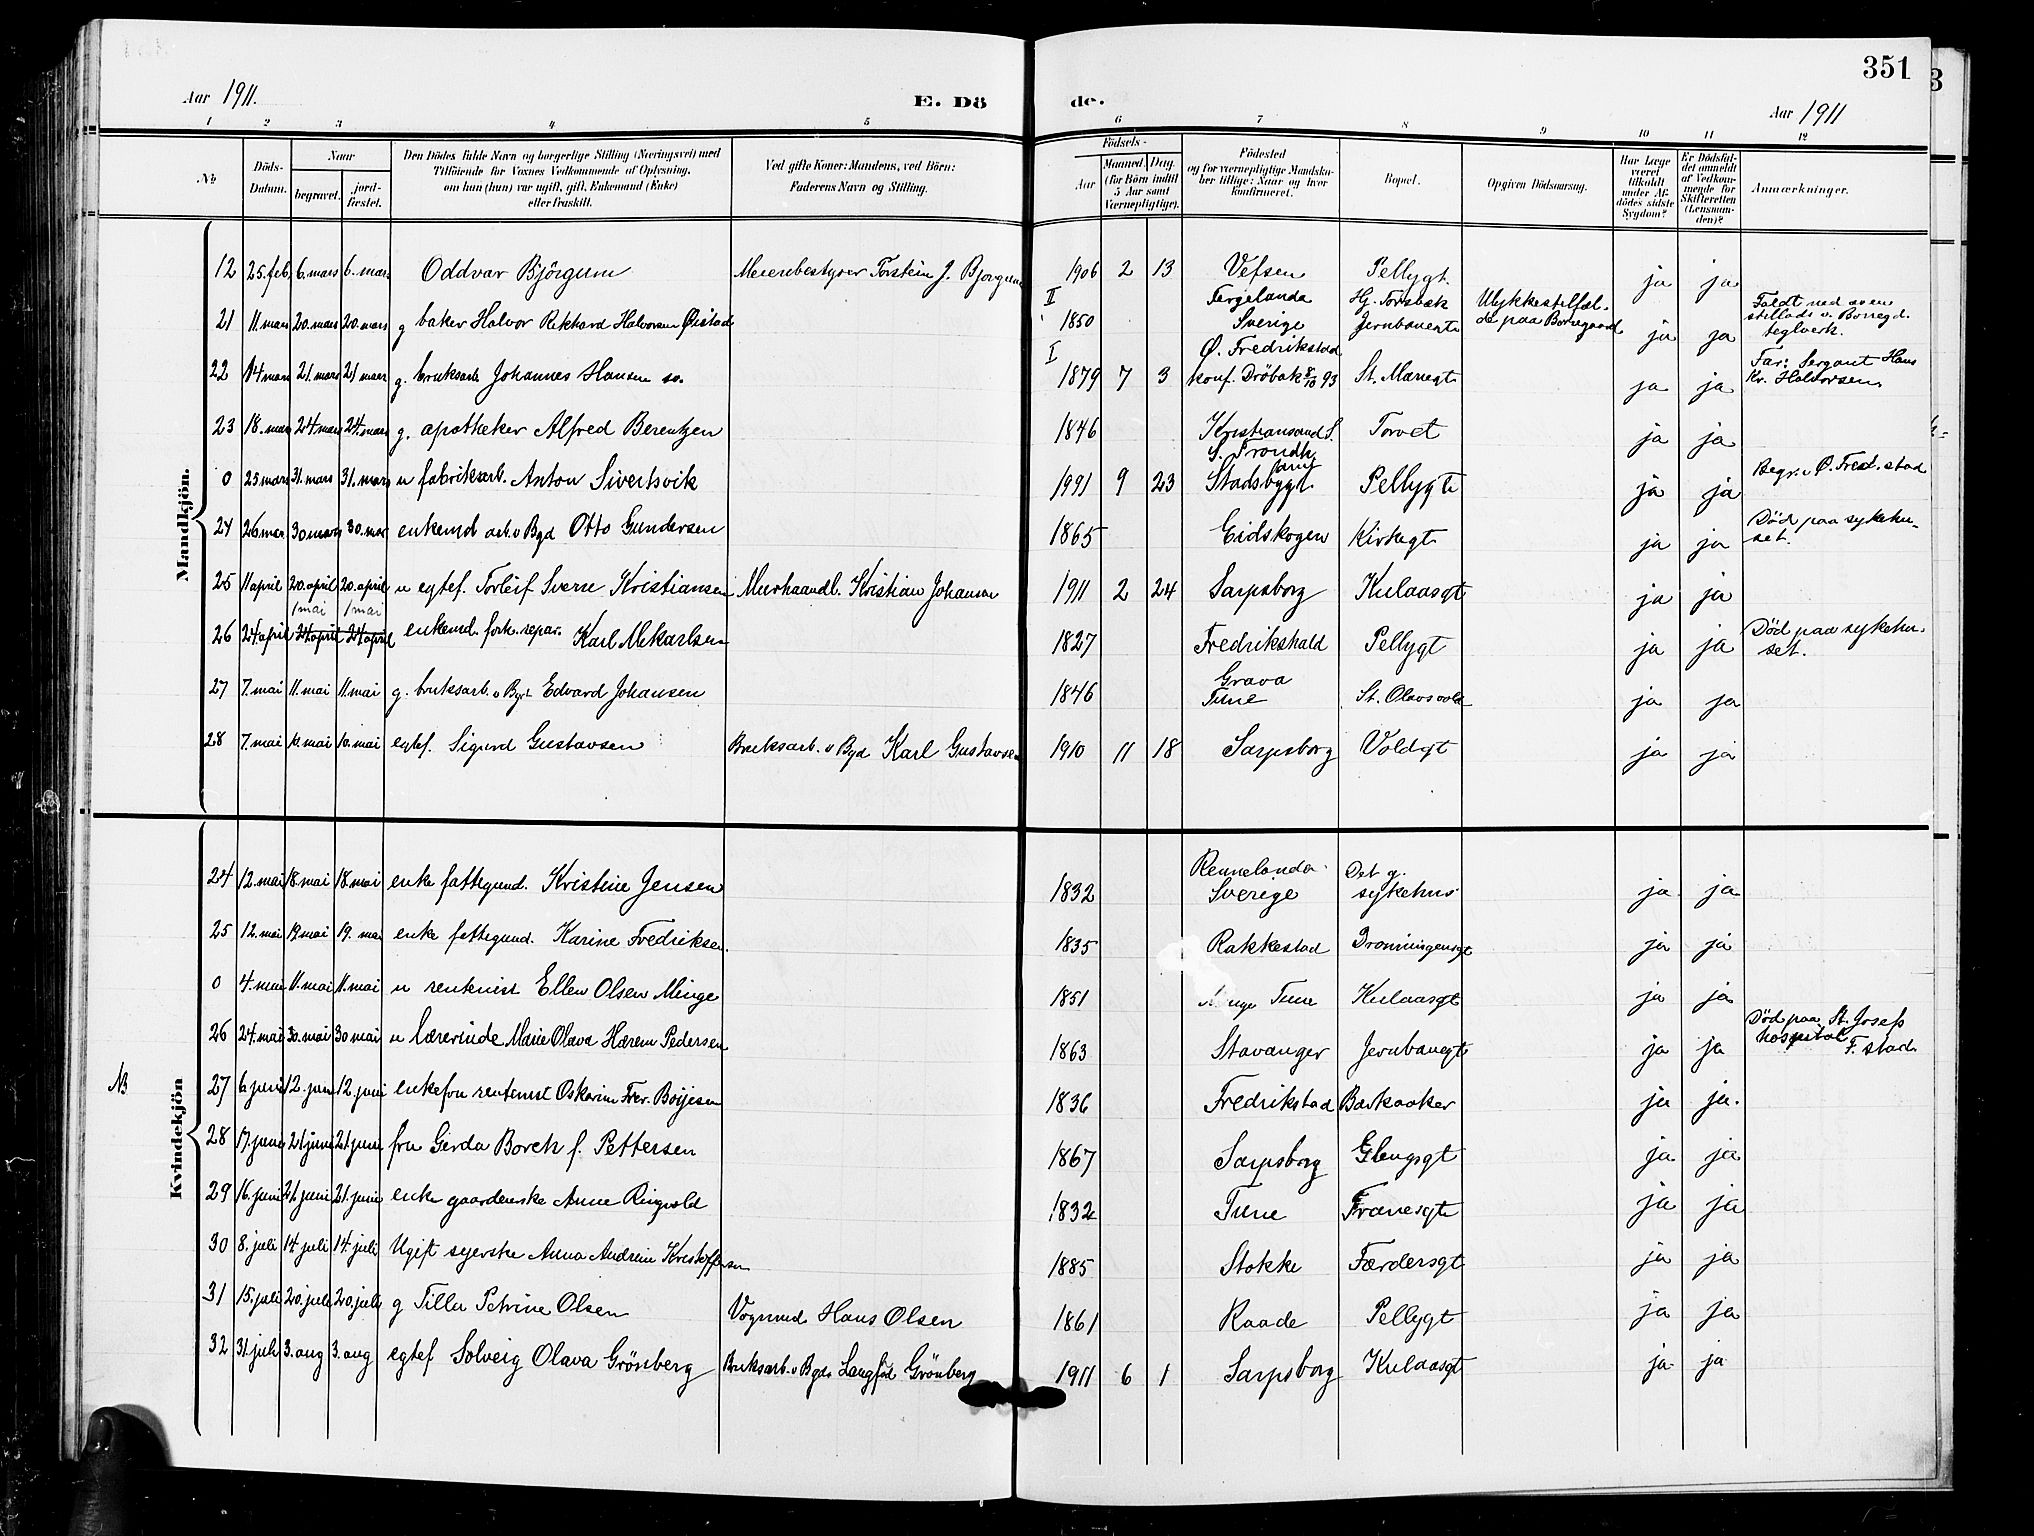 351
Aar 1911.
E. Dö
de.
Aar 1911
1 2 3 4 5 6 7 8 9 10 11 12
No
Döds-Datum.
Naar
begravet.
jord-fæstet.
Den Dödes fulde Navn og borgerlige Stilling (Næringsvei) med
Tilföiende for Voxnes Vedkommende af Oplysning,
om han (hun) var ugift, gift, Enkemand (Enke)
eller fraskilt.
Ved gifte Koner: Mandens, ved Börn:
Faderens Navn og Stilling.
Födsels-
Aar
Maaned. Dag.
(for Börn indtil
5 Aar samt
Værnepligtige).
Födested
og for værnepligtige Mandska-
ber tillige: Naar og hvor
konfirmeret.
Bopæl.
Opgiven Dödsaarsag.
Har Læge
været
tilkaldt
under Af-
dödes sidste
Sygdom?
Er Dödsfal-
det anmeldt
af Vedkom-
mende for
Skifteretten
(Lensman-
den)?
Anmærkninger.
Mandkjön.
12 25. feb. 6. mars 6. mars Oddvar Björgum Meieribestyrer Torstein J. Bjorgum 1906 2 13 Vefsen Pellygt. ja ja
21 11. mars 20. mars 20. mars g baker Halvor Rikhard Halvorsen Øistad II 1850 Færgelanda Sverige Hj. Torsbæk Jernbanegt Ulykkestilfæl-de paa Borregaard ja ja Faldt ned av en stillads v. Borregd. teglverk.
22 14 mars 21. mars 21 mars g. bruksarb Johannes Hansen I 1879 7 3 Ø. Fredrikstad konf. Dröbak 8/10 93 St. Mariegt ja ja Far: Sergant Hans Kr. Halvorsen
23 18. mars 24 mars 24. mars g. apotheker Alfred Berentzen 1846 Kristiansand S. Torvet ja ja
0 25 mars 31. mars 31. mars u fabriksarb. Anton Sivertsvik 1991 9 23 S. Trondh. amt Stadsbygd. Pellygt ja ja Begr. i Ø. Fred.stad
24 26 mar. 30 mars 30. mar enkemd arb. v Bgd Otto Gundersen 1865 Eidskogen Kirkegt ja ja Död paa sykehu-set.
25 11 april 20. april 20. april u egtef. Torleif Sverre Kristiansen Murhaandl. Kristian Johansen 1911 2 24 Sarpsborg Kulaasgt ja ja
26 24 april 24 april 1 mai 24 april 1 mai enkemd. fork. repar. Karl Mekarlsen 1827 Fredrikshald Pellygt ja ja Död paa sykehu-set.
27 7. mai 11. mai 11. mai g. bruksarb. v Bgd Edvard Johansen 1846 Grava Tune St. Olavsvold ja ja
28 7. mai 10. mai 10. mai egtef. Sigurd Gustavsen Bruksarb. v Bgd Karl Gustavsen 1910 11 18 Sarpsborg Voldgt ja ja
Kvindekjön
24 12. mai 18. mai 18. mai enke fattigund. Kristine Jensen 1832 Rennelanda Sverige Det g. sykehus ja ja
25 12. mai 19 mai 19. mai enke fattigund. Karine Fredriksen. 1835 Rakkestad Dronningensgt ja ja
0 4. mai 11. mai 11. mai u rentenist Ellen Olsen Minge 1851 Minge Tune Kulaasgt ja ja
26 24. mai 30. mai 30 mai u lærerinde Marie Olava Hærem Pedersen 1863 Stavanger Jernbanegt ja ja Död paa St. Josefs hospital F. stad
NB 27 6. juni 12. juni 12. juni enkefru rentenist Oskarine Fredr. Böijesen 1836 Fredrikstad Barkaaker ja ja.
28 17. juni 21 juni 21. juni fru Gerda Borch f. Pettersen 1867 Sarpsborg Glengsgt ja ja
29 16. juni 21. juni 21. juni enke gaardenske Anne Ringvold 1832 Tune Frænesgt ja ja
30 8. juli 14. juli 14. juli Ugift syerske Anna Andrine Kristoffersen 1885 Stokke Færdersgt ja ja
31 15. juli 20. juli 20. juli g Tilla Petrine Olsen Vognmd Hans Olsen 1861 Raade Pellygt ja ja
32 31. juli 3. aug 3. aug egtef Solveig Olava Grönberg Bruksarb. v Bgd Grönberg 1911 6 1 Sarpsborg Kulaasgt ja ja